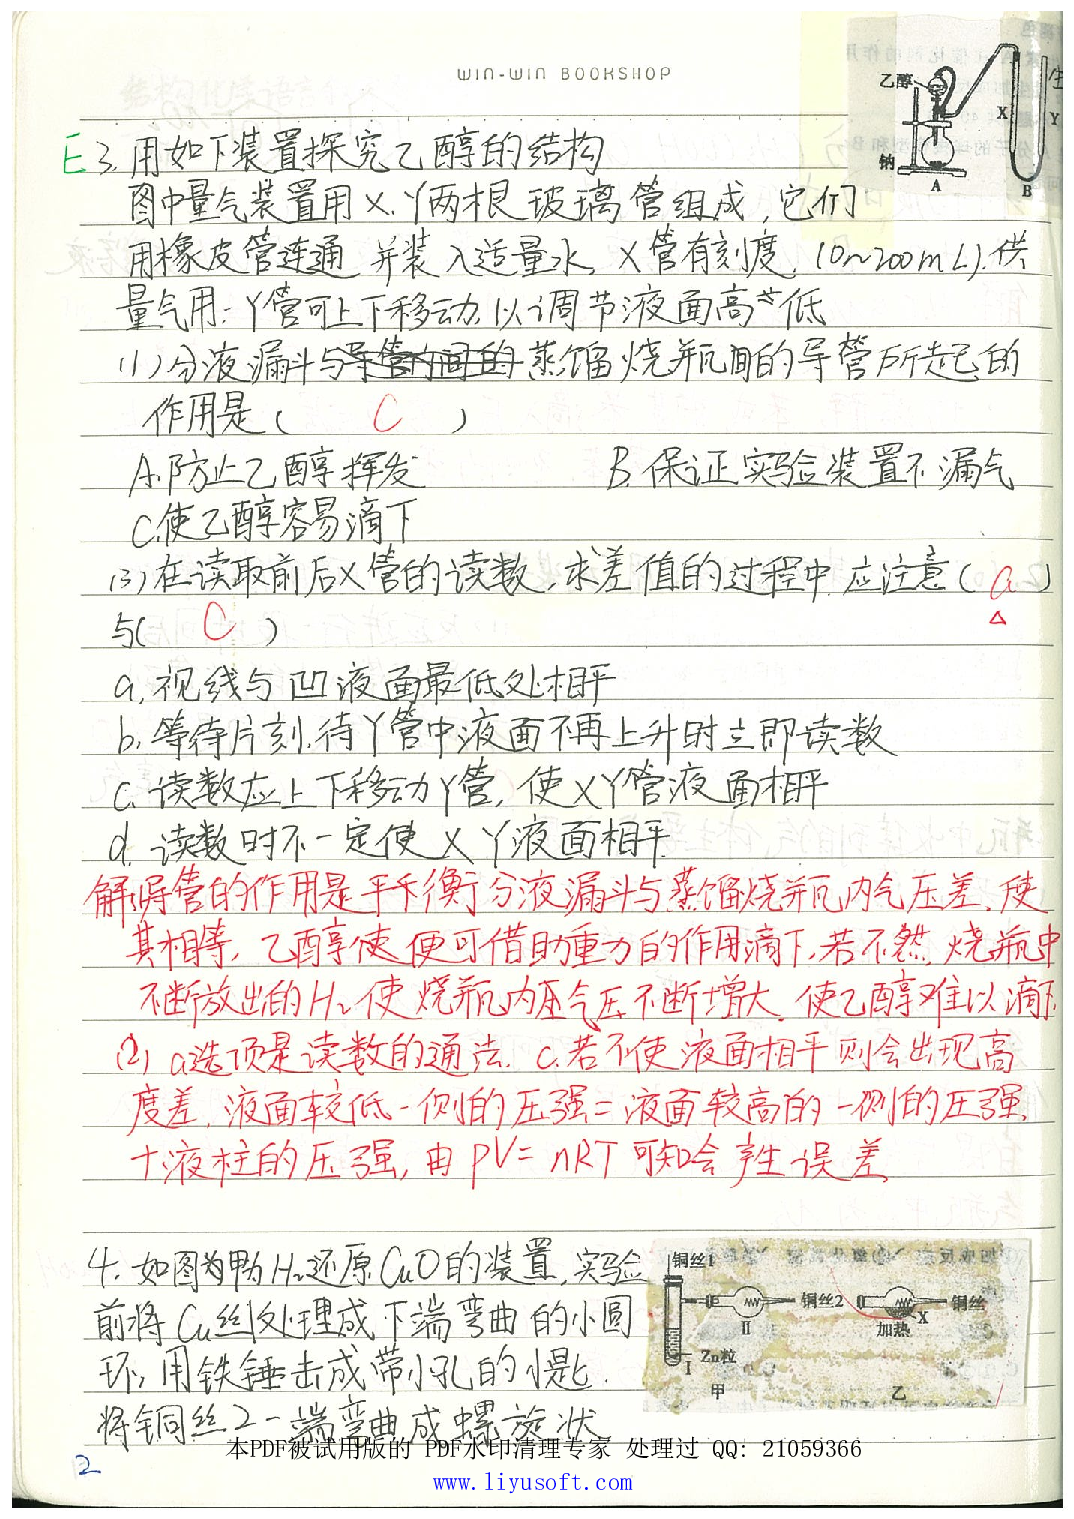 WIN-WIN BOOKSHOP
乙醇
X
Y
钠
A
B
E 3. 用如下装置探究乙醇的结构
图中量气装置用X、Y两根玻璃管组成，它们
用橡皮管连通 并装入适量水，X管有刻度，(0~200mL).供
量气用；Y管可上下移动.以调节液面高低
(1)分液漏斗与导管间的蒸馏烧瓶间的导管所起的
作用是（ C ）
A.防止乙醇挥发 B 保证实验装置不漏气
C.使乙醇容易滴下
(3)在读取前后X管的读数，求差值的过程中 应注意（ a ）
与( C )
a.视线与凹液面最低处相平
b.等待片刻.待Y管中液面不再上升时立即读数
c.读数应上下移动Y管，使XY管液面相平
d.读数时不一定使X Y液面相平.
解:导管的作用是平衡分液漏斗与蒸馏烧瓶内气压差.使
其相等，乙醇使便可借助重力的作用滴下.若不然，烧瓶中
不断放出的H₂使烧瓶内压气压不断增大，使乙醇难以滴下
(2) a选项是读数的通法. c.若不使液面相平则会出现高
度差，液面较低一侧的压强=液面较高的一侧的压强
+液柱的压强，由PV=nRT可知会产生误差
4. 如图为甲为H₂还原CuO的装置，实验
前将Cu丝1处理成下端弯曲的小圆
环，用铁锤击成带小孔的小匙.
将铜丝2一端弯曲成螺旋状
铜丝1
铜丝2
II
Zn粒
I
甲
铜丝
X
加热
乙
本PDF被试用版的 PDF水印清理专家 处理过 QQ: 21059366
www.liyusoft.com
2